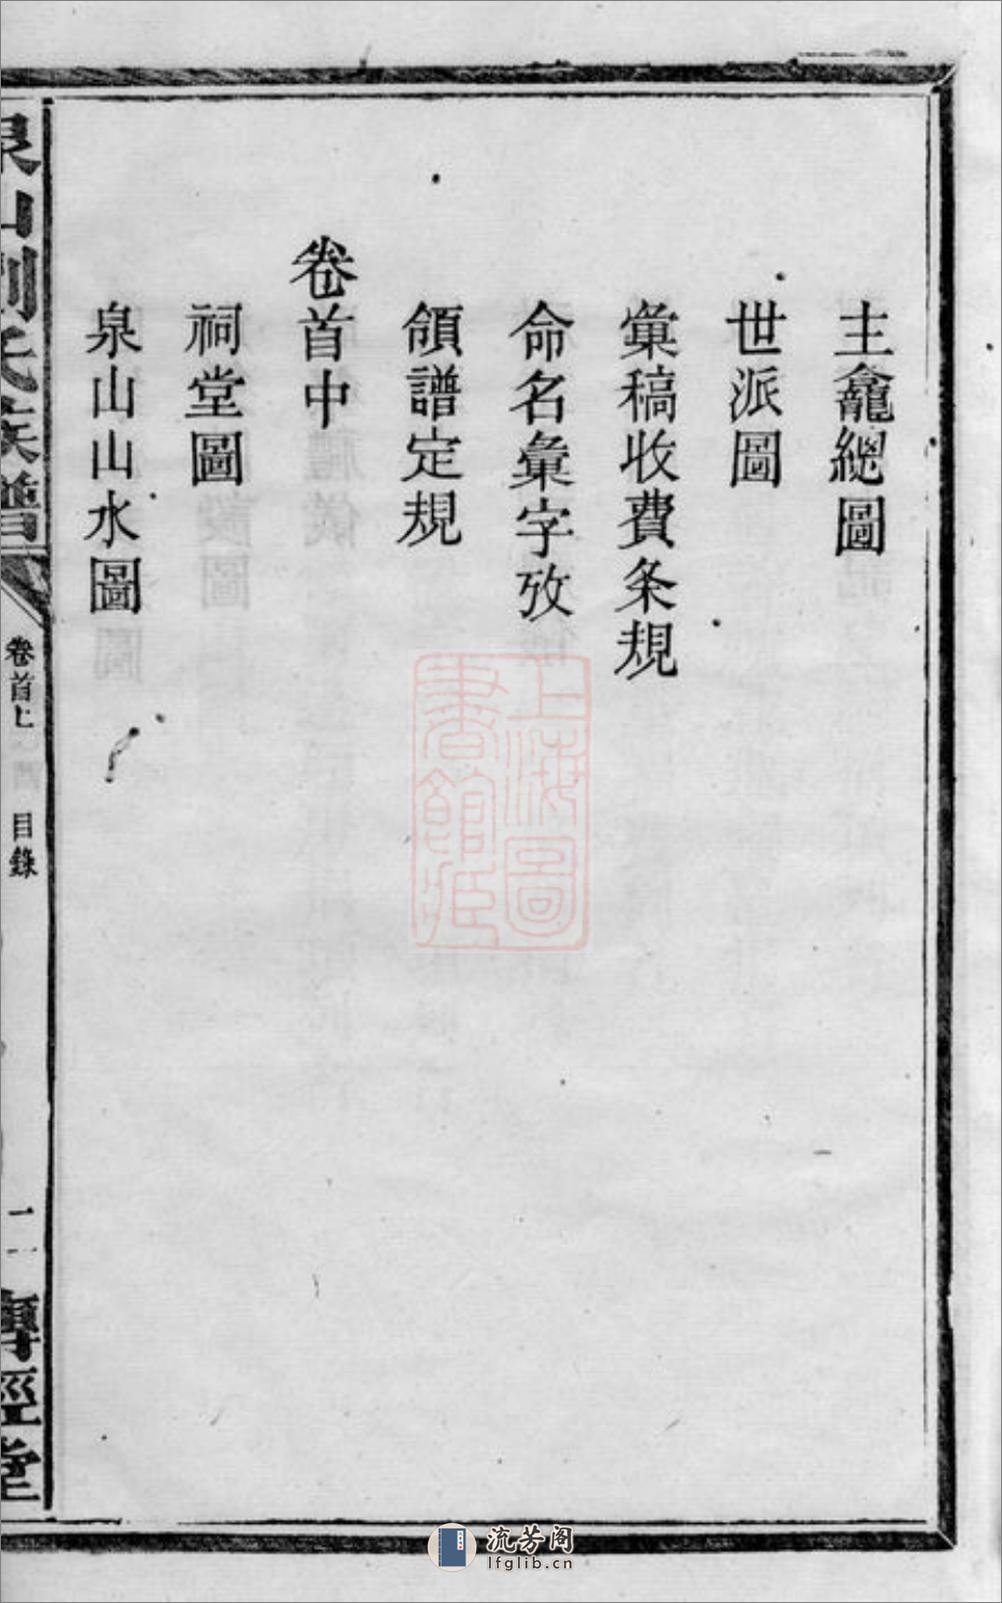 主龕總圖
世派圖
彙稿收費条規
命名彙字攷
領譜定規
卷首中
祠堂圖
泉山山水圖
泉山劉氏族譜
卷首上
目錄
二
傳經堂
上海圖
書館藏
流芳阁
lfglib.cn